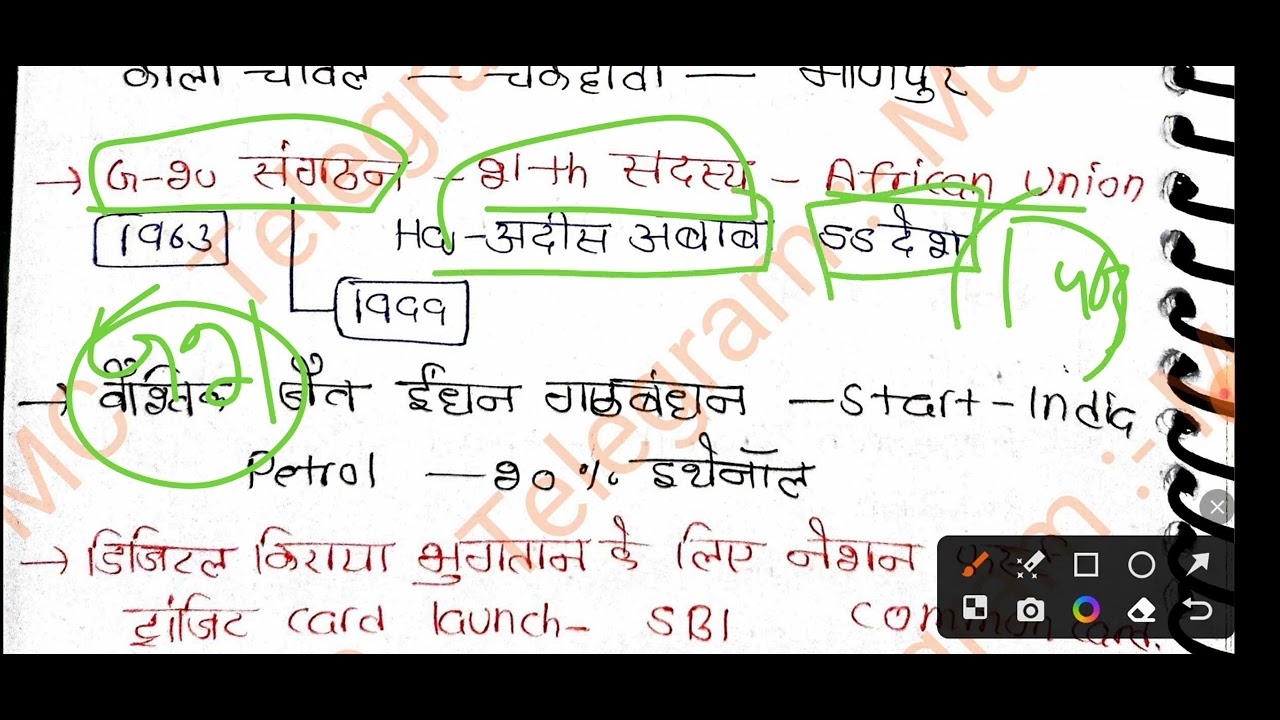 काला चावल — चकहावो — मणिपुर
→ G-20 संगठन - 21th सदस्य - African Union
1963 HQ - अदीस अबाब 55 देश
1999
→ वैश्विक जैव ईंधन गठबंधन - Start - India
Petrol — 20 % इथेनॉल
→ डिजिटल किराया भुगतान के लिए नेशन
ट्रांजिट card launch - SBI common card.